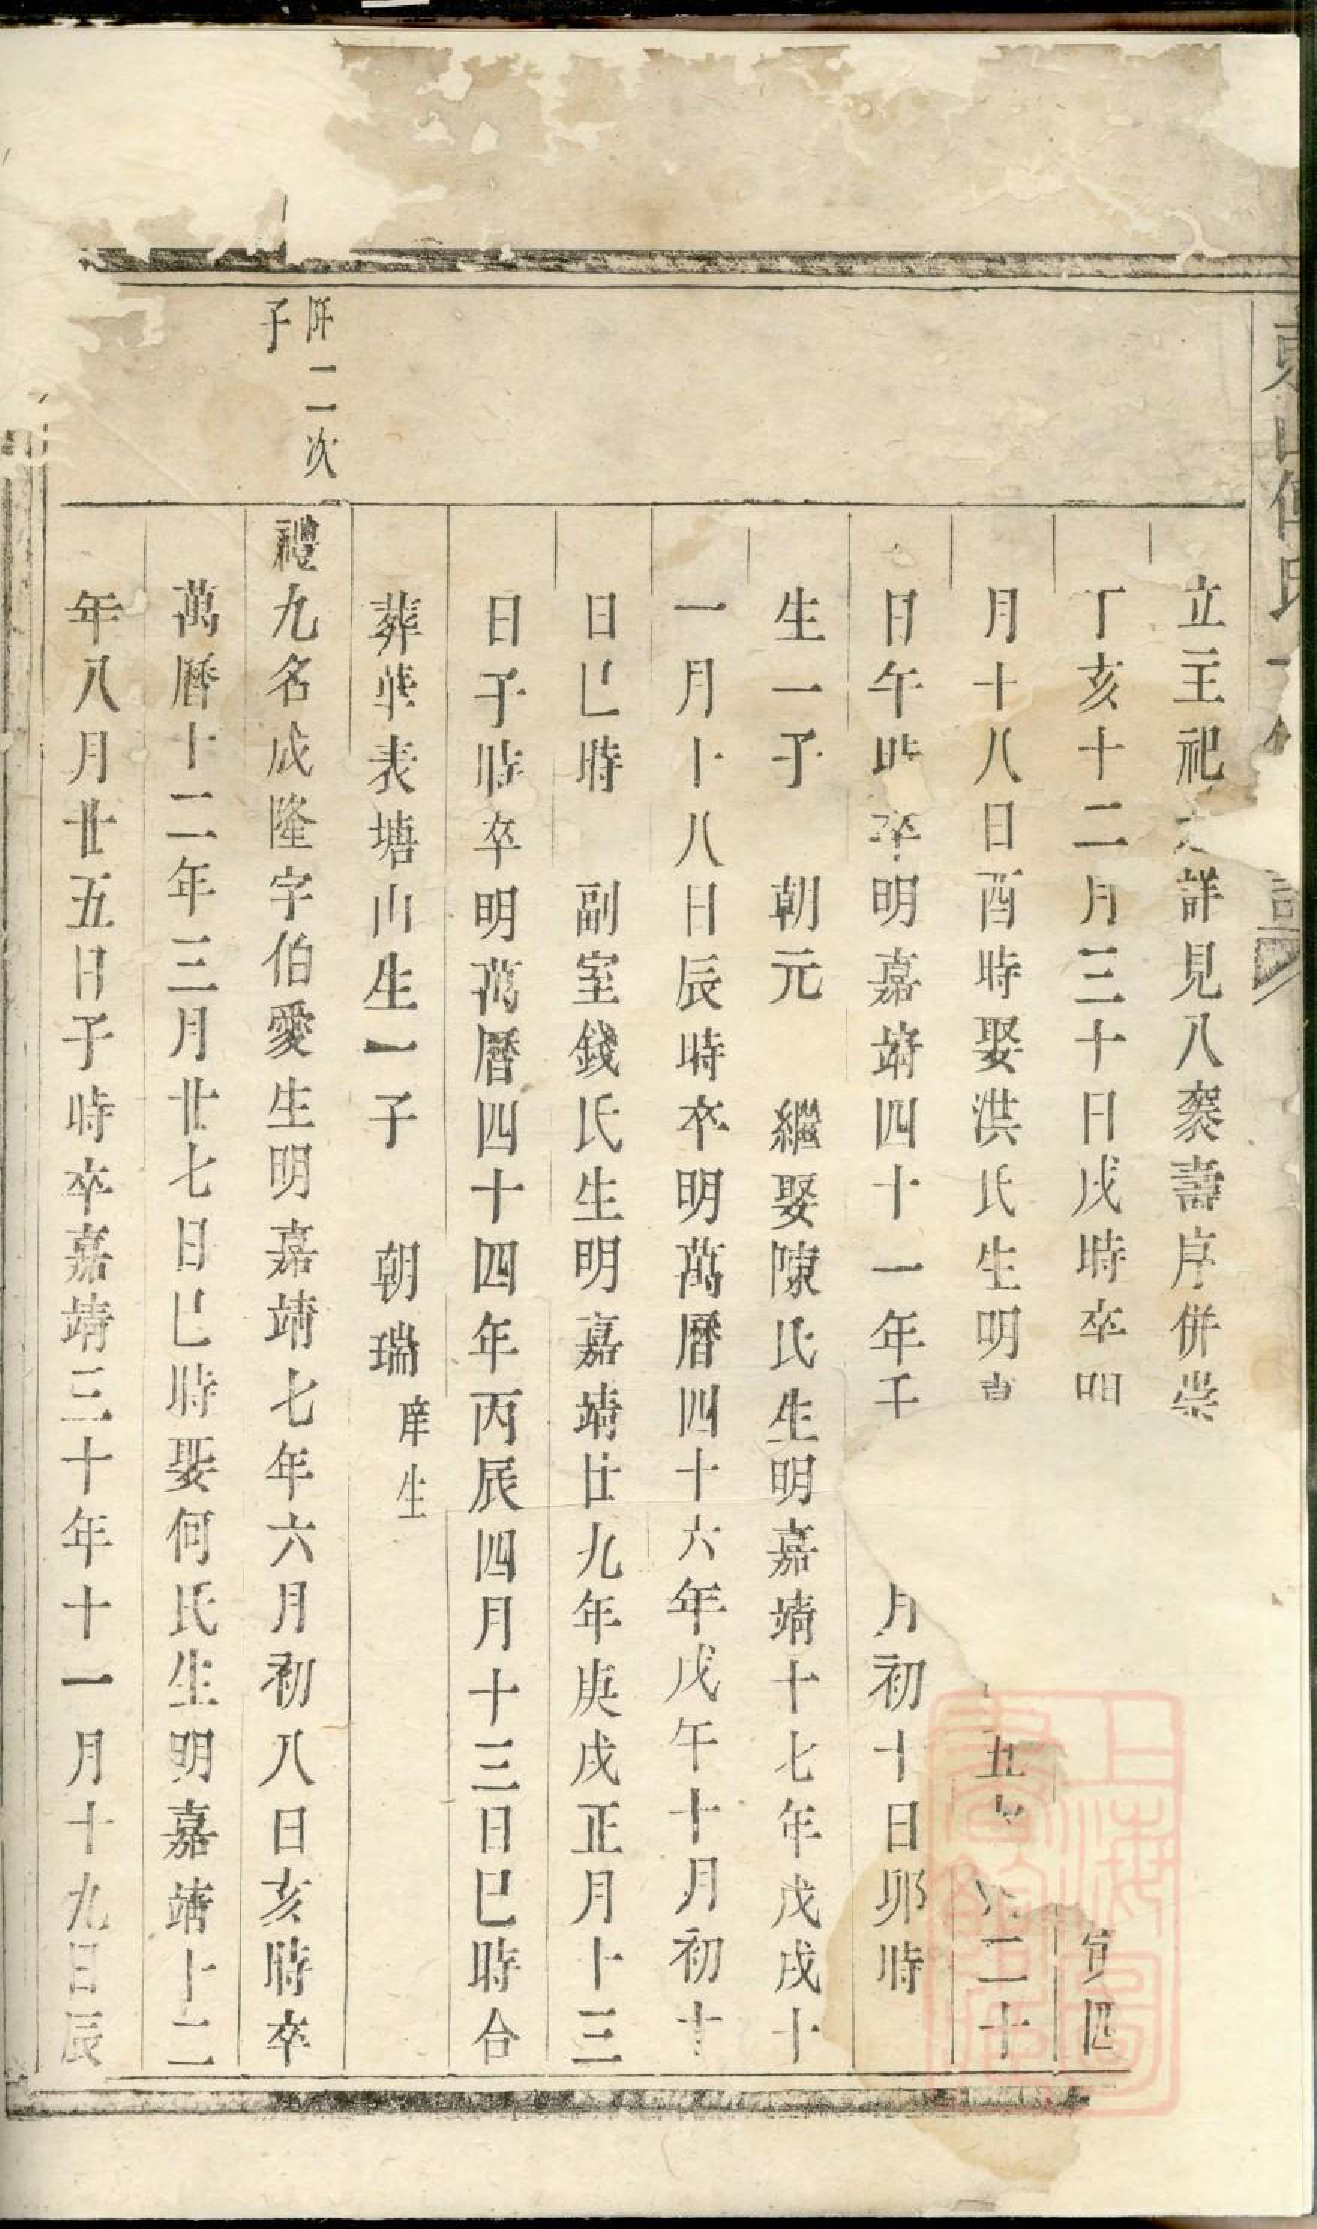 立主祀之詳見八袠壽序併崇
丁亥十二月三十日戌時卒明 寅四
月十八日酉時娶洪氏生明 五 二十
日午時卒明嘉靖四十一年壬 月初十日卯時
生一子 朝元 繼娶陳氏生明嘉靖十七年戊戌十
一月十八日辰時卒明萬曆四十六年戊午十月初十
日巳時 副室錢氏生明嘉靖廿九年庚戌正月十三
日子時卒明萬曆四十四年丙辰四月十三日巳時合
葬華表塘山生一子 朝瑞 庠生
二次
子
禮九名成隆字伯愛生明嘉靖七年六月初八日亥時卒
萬曆十二年三月廿七日巳時娶何氏生明嘉靖十二
年八月廿五日子時卒嘉靖三十年十一月十九日辰
上海圖
書館藏